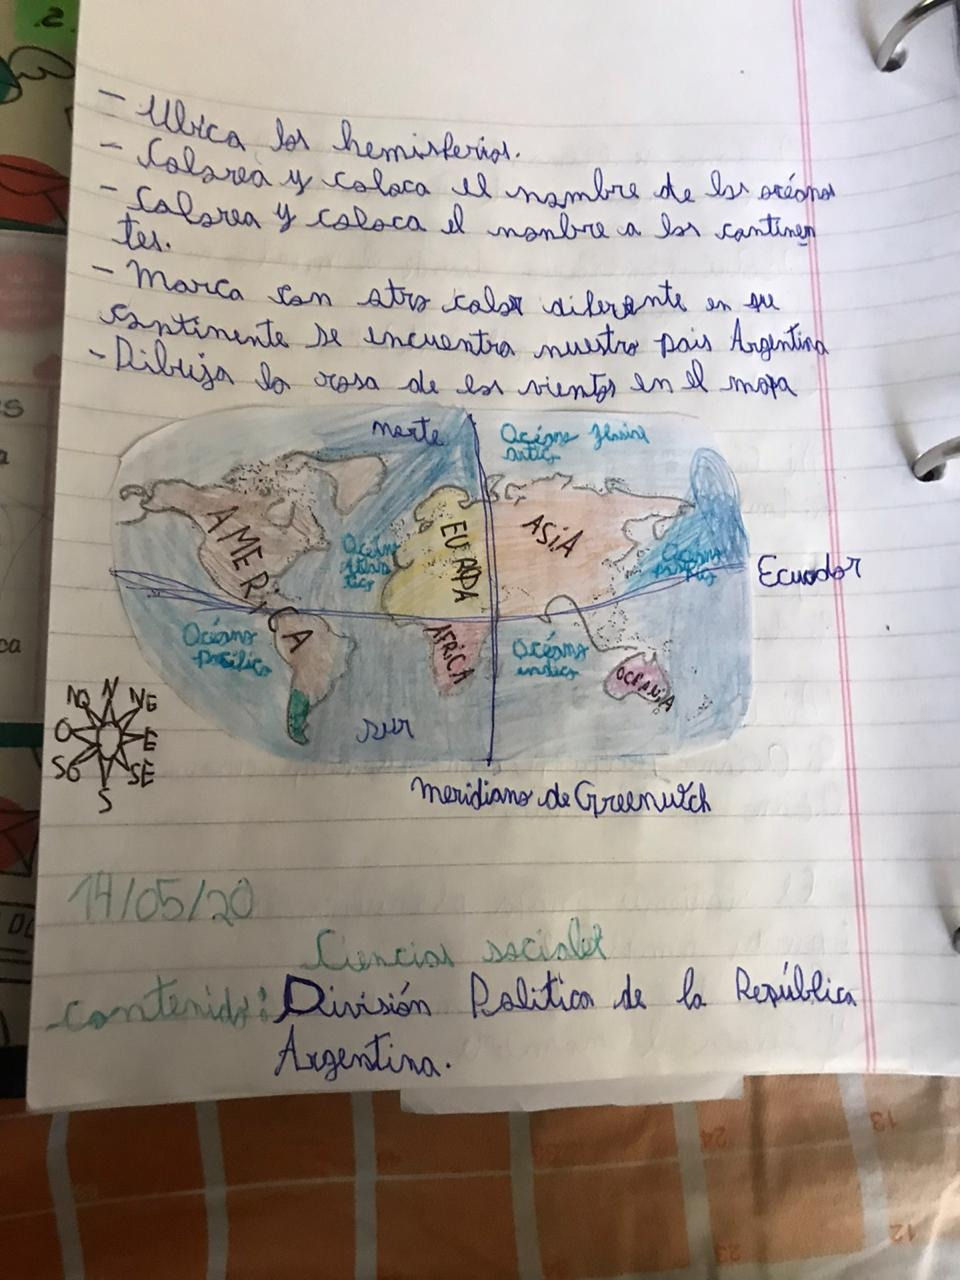 - Ubica los hemisferios.
- Colorea y coloca el nombre de los océanos
- Colorea y coloca el nombre a los continen
tes.
- Marca con otro color diferente en que
continente se encuentra nuestro pais Argentina
- Dibuja la rosa de los vientos en el mapa
norte
Océano
AMERICA
EUROPA
ASIA
Océano
Ecuador
Océano
Pacifico
AFRICA
Océano
indico
OCEANIA
sur
NO N NE
O E
SO SE
S
meridiano de Greenwich
14/05/20
Ciencias sociales
Contenido: División Politica de la República
Argentina.